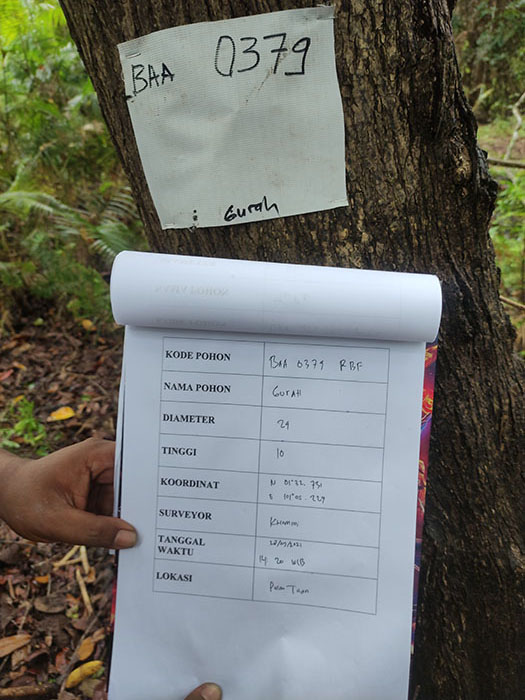 BAA 0379
Gurah
KODE POHON BAA 0379 RBF
NAMA POHON GURAH
DIAMETER 29
TINGGI 10
KOORDINAT N 01°32. 731
E 101°05. 229
SURVEYOR
TANGGAL
WAKTU 14 20 WIB
LOKASI